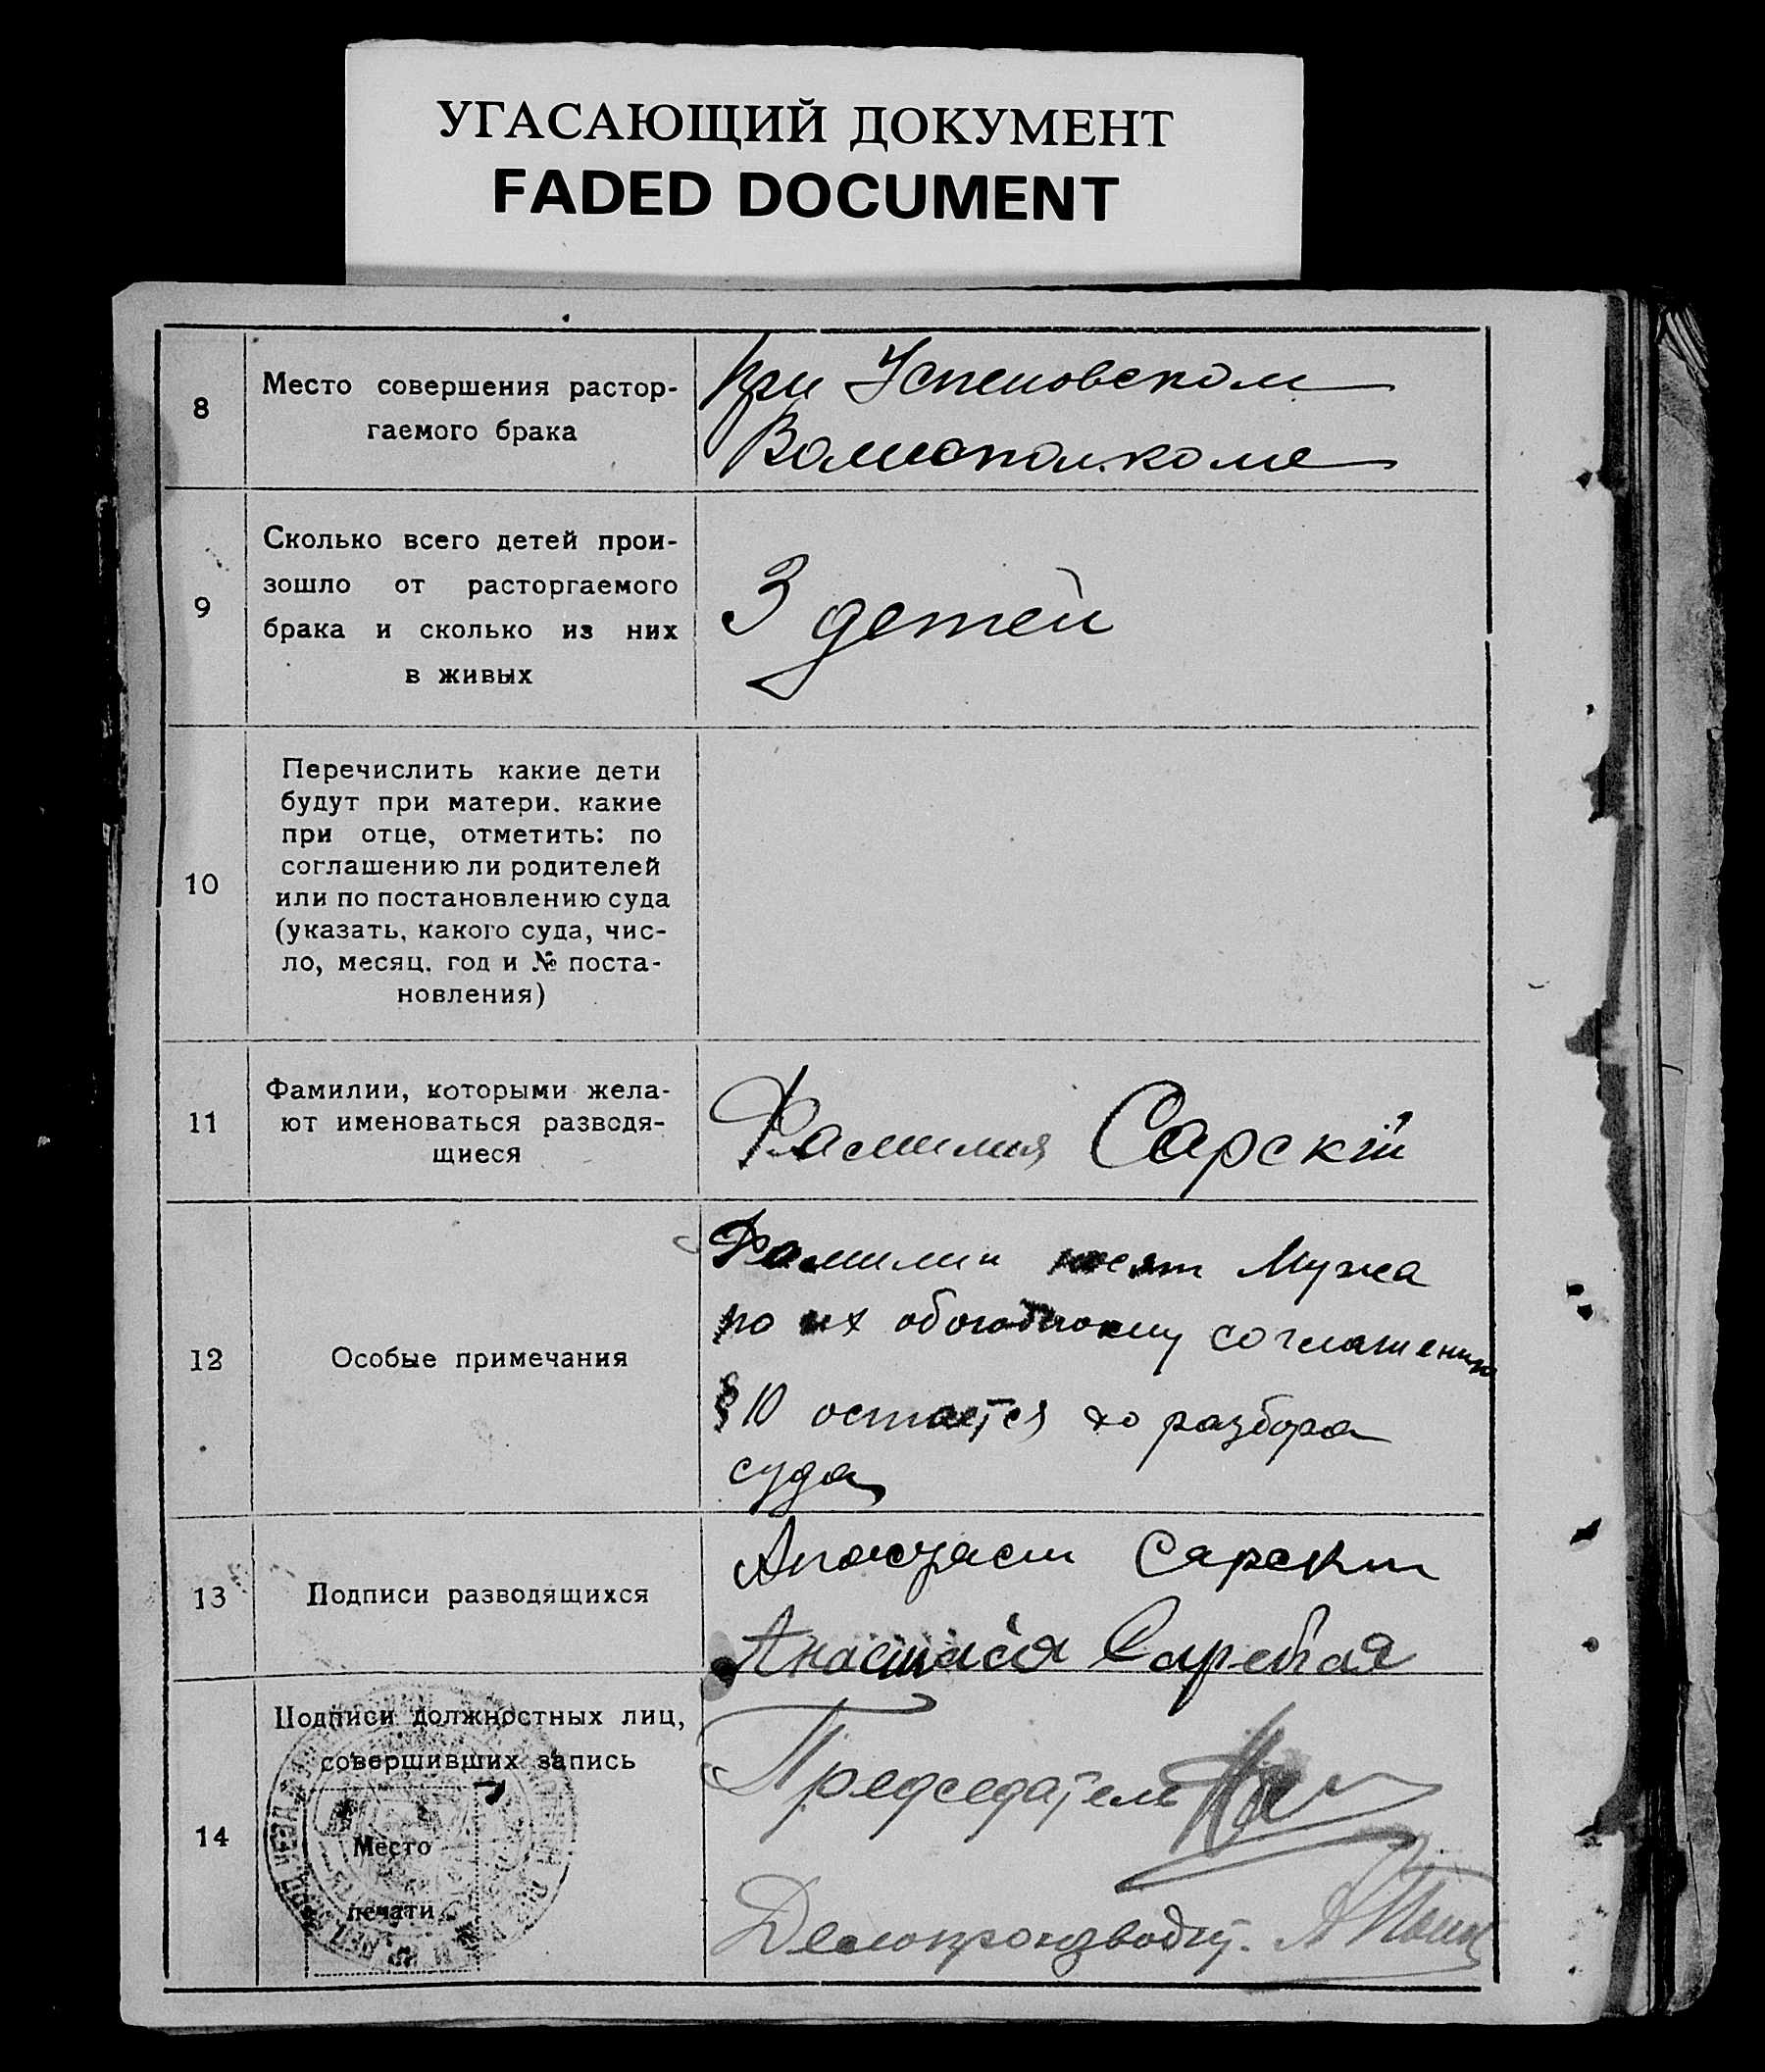 УГАСАЮЩИЙ ДОКУМЕНТ
FADED DOCUMENT
8
Место совершения растор-
гаемого брака
при Успеновском
Волисполкоме
9
Сколько всего детей прои-
зошло от расторгаемого
брака и сколько из них
в живых
3 детей
10
Перечислить какие дети
будут при матери. какие
при отце, отметить: по
соглашению ли родителей
или по постановлению суда
(указать, какого суда, чис-
ло, месяц. год и № поста-
новления)
11
Фамилии, которыми жела-
ют именоваться разводя-
щиеся
Фамилия Сарскій
12
Особые примечания
Фамилии носят Мужа
по их обоюдному соглашению
§ 10 остается до разбора
суда
13
Подписи разводящихся
Сарски
Анастасия Сарская
14
Подписи должностных лиц,
совершивших запись
Место
печати
Председатель
Делопроизводит.